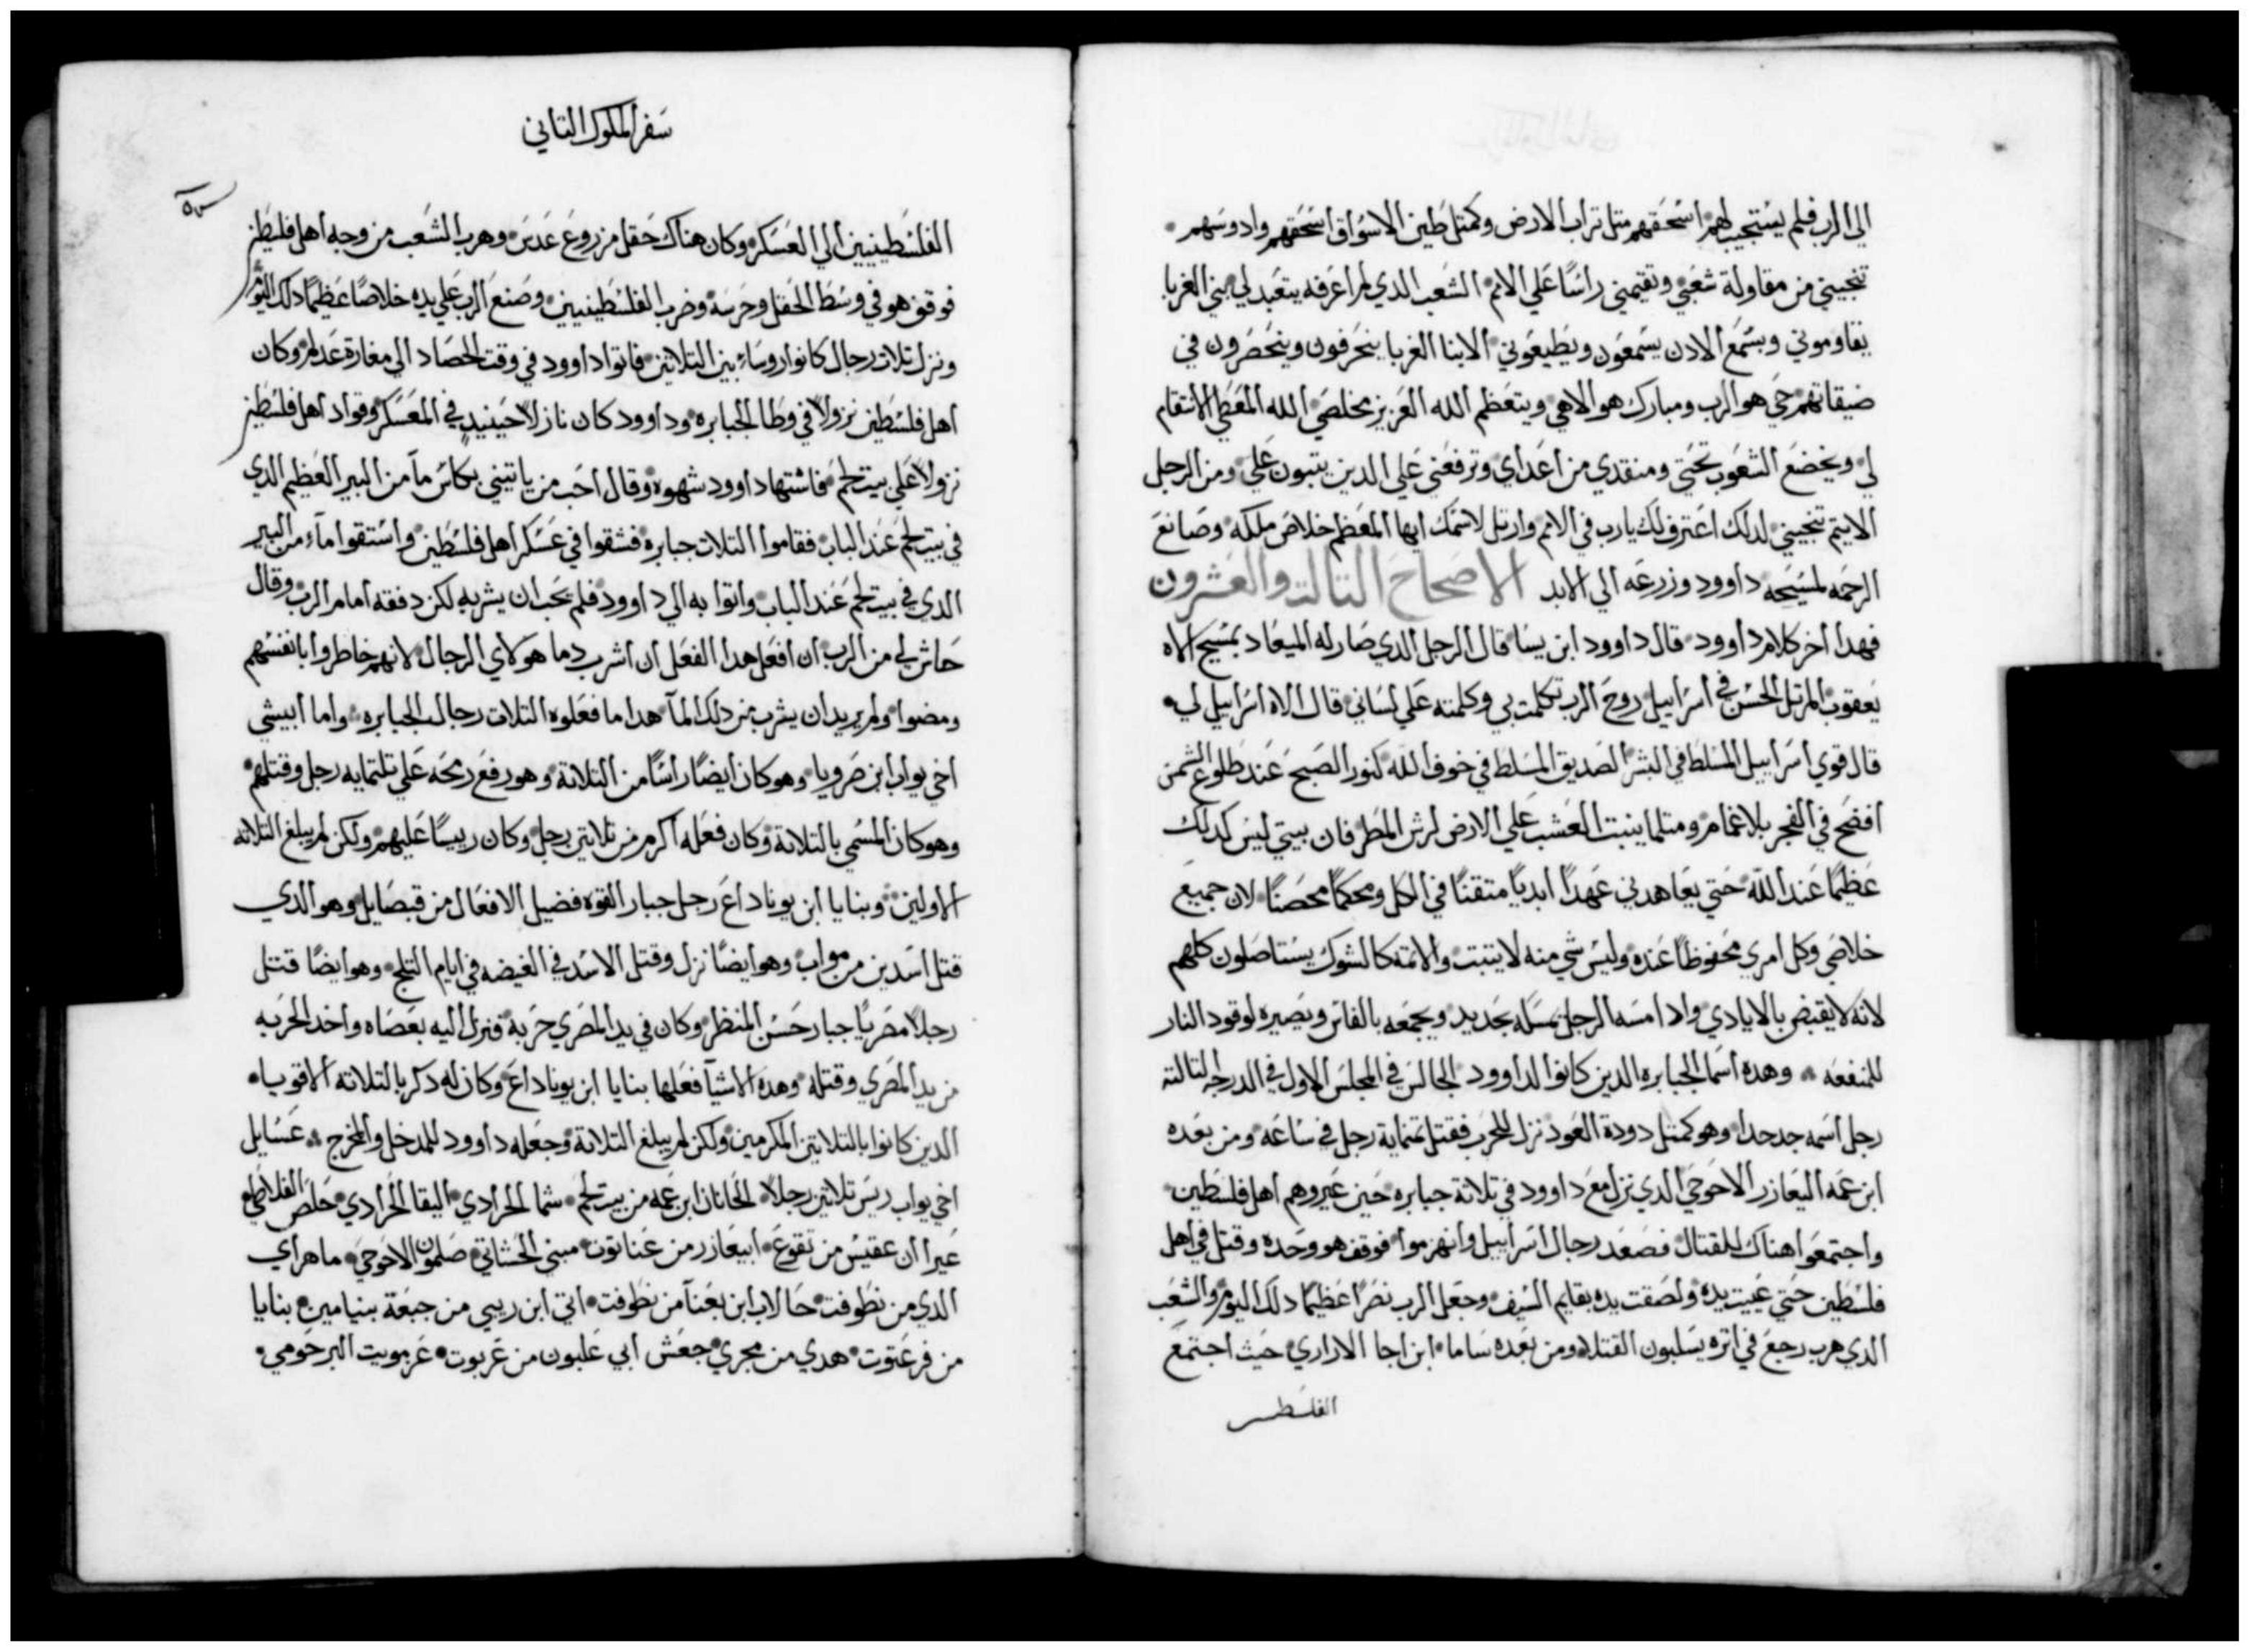 الي الرب فلم يستجيب لهم اسحقهم متل تراب الارض وكمتل طين الاسواق اسحقهم وادوسهم
تنجيني من مقاولة شعبي وتقيمني راسًا علي الامم الشعب الدي لم اعرفه يتعبد لي بني الغربا
يقاوموني وبسمع الادن يسمعون ويطيعوني الابنا الغربا ينحرفون وينحصرون في
ضيقاتهم حي هو الرب ومبارك هو الاهي ويتعظم الله العزيز مخلصي الله المعطي الانتقام
لي ويخضع الشعوب تحتي ومنقدي من اعداي وترفعني علي الدين يتبون علي ومن الرجل
الايتم تنجيني لدلك اعترف لك يارب في الامم وارتل لاسمك ايها المعظم خلاص ملكه وصانع
الرحمه لمسيحه داوود وزرعه الي الابد الاصحاح التالت والعشرون
فهدا اخر كلام داوود قال داوود ابن يسا قال الرجل الدي صار له الميعاد بمسيح الاه
يعقوب المرتل الحسن في اسراييل روح الرب تكلمت بي وكلمته علي لساني قال الاه اسراييل لي
قال قوي اسراييل المسلط في البشر الصديق المسلط في خوف الله كنور الصبح عند طلوع الشمس
افضح في الفجر بلا غمام ومتلما ينبت العشب علي الارض لرش المطر فان بيتي ليس كدلك
عظيمًا عند الله حتي يعاهدني عهدًا ابديًا متقنًا في الكل ومحكمًا محصنًا لان جميع
خلاصي وكل امري محفوظًا عنده وليس شي منه لا يتبت والاتمة كالشوك يستاصلون كلهم
لانه لا يقبض بالايادي وادا امسه الرجل يمسكه بحديد ويجمعه بالفاس ويصيره لوقود النار
للمنفعه وهده اسما الجبابره الدين كانوا لداوود الجالس في المجلس الاول في الدرجه التالته
رجل اسمه جدحدا وهو كمتل دودة العود نزل للحرب فقتل تمنماية رجل في ساعة ومن بعده
ابن عمه اليعازر الاحوحي الدي نزل مع داوود في تلاتة جبابره حين عيروهم اهل فلسطين
واجتمعوا هناك للقتال فصعد رجال اسراييل وانهرموا فوقف هو وحده وقتل في اهل
فلسطين حتي عيت يده ولصقت يده بقايم السيف وجعل الرب نصرًا عظيمًا دلك اليوم والشعب
الدي هرب رجع في اتره يسلبون القتلا ومن بعده ساما ابن اجا الاراري حيث اجتمع
سفر الملوك التاني
الفلسطينيين الي العسكر وكان هناك حقل مزروع عدس وهرب الشعب من وجه اهل فلسطين
فوقف هو في وسط الحقل وحرسه وضرب الفلسطينيين وصنع الرب علي يده خلاصًا عظيمًا دلك اليوم
ونزل تلات رجال كانوا روساء بين التلاتين فاتوا داوود في وقت الحصاد الي مغارة عدلم وكان
اهل فلسطين نزولًا في وطا الجبابره وداوود كان نازلًا حينيد في المعسكر وقواد اهل فلسطين
نزولًا علي بيت لحم فاشتها داوود شهوة وقال احب من ياتيني بكاس مآ من البير العظيم الدي
في بيت لحم عند الباب فقاموا التلات جبابره فشقوا في عسكر اهل فلسطين واستقوا مآء من البير
الدي في بيت لحم عند الباب واتوا به الي داوود فلم يحب ان يشربه لكن دفقه امام الرب وقال
حاش لي من الرب ان افعل هدا الفعل ان اشرب دما هولاي الرجال لانهم خاطروا بانفسهم
ومضوا ولم يريد ان يشرب من دلك المآ هدا ما فعلوه التلات رجال الجبابره واما ابيشي
اخي يواب ابن صرويا وهو كان ايضًا راسًا من التلاتة وهو رفع رمحه علي تلتمايه رجل وقتلهم
وهو كان المسمي بالتلاتة وكان فعله اكرم من تلاتين رجل وكان رييسًا عليهم ولكن لم يبلغ التلاته
الاولين وبنايا ابن يوناداع رجل جبار القوه فضيل الافعال من قبصاييل وهو الدي
قتل اسدين من مواب وهو ايضًا نزل وقتل الاسد في الغيضه في ايام التلج وهو ايضًا قتل
رجلًا مصريًا جبار حسن المنظر وكان في يد المصري حربة فنزل اليه بعصاه واخد الحربه
من يد المصري وقتله وهده الاشيآ فعلها بنايا ابن يوناداع وكان له دكر بالتلاته الاقوياء
الدين كانوا بالتلاتين المكرمين ولكن لم يبلغ التلاتة وجعله داوود للمدخل والمخرج عسايل
اخي يواب ريس تلاتين رجلًا الحانان ابن عمه من بيت لحم شما الحرادي اليقا الحرادي حلص الفلاطي
عيرا ان عقيس من تقوع ابيعازر من عناتوت مبني الحشاتي صلمون الاحوحي ماهراي
الدي من نطوفت حالاب ابن بعنآ من نطوفت اتي ابن ريبي من جبعة بنيامين بنايا
من فرعتوت هدي من مجري جعش ابي علبون من عربوت عزمويت البرحومي